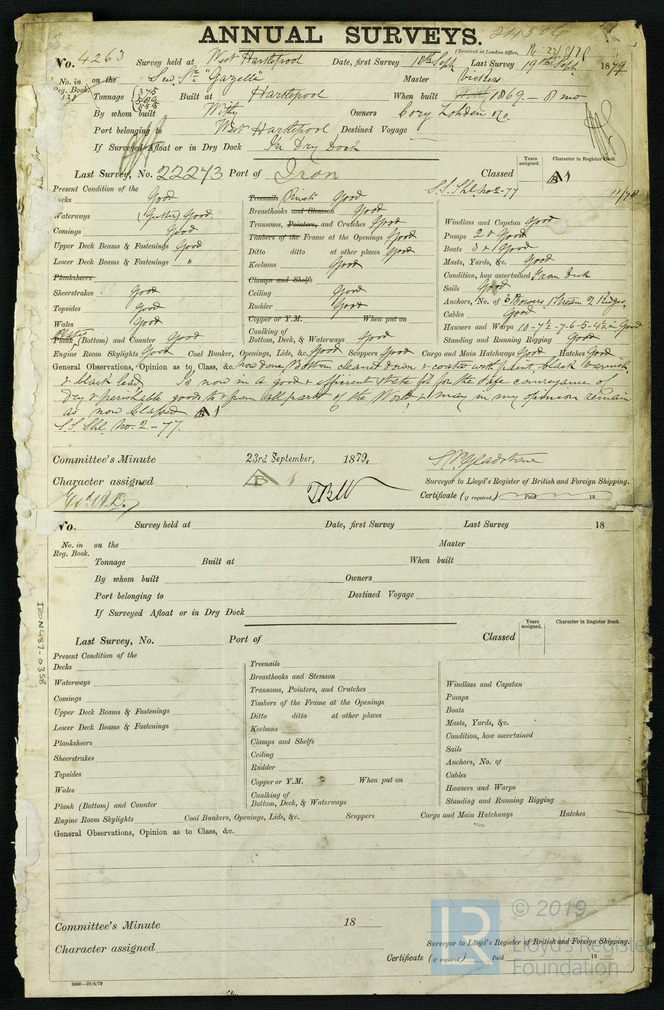 ANNUAL SURVEYS.
(Received at London Office,
No. 4263 Survey held at West Hartlepool Date, first Survey 18th Sept Last Survey 19th Sept. 1879
No. in Reg. Book. on the Sew Str "Gazelle" Master
Tonnage Built at Hartlepool When built 1869 - 8 mo
By whom built Withy Owners Cory Lohden &Co.
Port belonging to West Hartlepool Destined Voyage
If Surveyed Afloat or in Dry Dock In Dry Dock
Last Survey, No. 22273 Port of Iron Classed Years assigned. Character in Register Book.
S.S. Shl. No 2-77 A1 11/78
Present Condition of the
Decks Good
Waterways (Gutter) Good
Comings Good
Upper Deck Beams & Fastenings Good
Lower Deck Beams & Fastenings "
Planksheers
Sheerstrakes Good
Topsides Good
Wales Good
Plank (Bottom) and Counter Good
Treenails Rivets Good
Breasthooks and Stemson Good
Transoms, Pointers, and Crutches Good
Timbers of the Frame at the Openings Good
Ditto ditto at other places Good
Keelsons Good
Clamps and Shelfs
Ceiling Good
Rudder Good
Copper or Y.M. When put on
Caulking of
Bottom, Deck, & Waterways Good
Windlass and Capstan Good
Pumps 2 & Good
Boats 3 & Good
Masts, Yards, &c. Good
Condition, how ascertained From Deck
Sails Good
Anchors, No. of 3 Bowers 1 Stream 2 Kedges
Cables Good
Hawsers and Warps 10-7½-7-6-5-4½ in Good
Standing and Running Rigging Good
Engine Room Skylights Good Coal Bunkers, Openings, Lids, &c. Good Scuppers Good Cargo and Main Hatchways Good Hatches Good
General Observations, Opinion as to Class, &c. Now done Bottom cleaned down & coated with paint, black varnish
& black lead. Is now in a good & efficient state fit for the safe conveyance of
Dry & perishable goods to & from all parts of the World & may in my opinion remain
as now classed A1
S.S. Shl. No. 2-77.
Committee's Minute 23rd September, 1879.
S W Gladstone
Character assigned A1
Surveyor to Lloyd's Register of British and Foreign Shipping.
Certificate (if required) Paid 18
No. Survey held at Date, first Survey Last Survey 18
No. in Reg. Book. on the Master
Tonnage Built at When built
By whom built Owners
Port belonging to Destined Voyage
If Surveyed Afloat or in Dry Dock
Last Survey, No. Port of Classed Years assigned. Character in Register Book.
Present Condition of the
Decks
Waterways
Comings
Upper Deck Beams & Fastenings
Lower Deck Beams & Fastenings
Planksheers
Sheerstrakes
Topsides
Wales
Plank (Bottom) and Counter
Treenails
Breasthooks and Stemson
Transoms, Pointers, and Crutches
Timbers of the Frame at the Openings
Ditto ditto at other places
Keelsons
Clamps and Shelfs
Ceiling
Rudder
Copper or Y.M. When put on
Caulking of
Bottom, Deck, & Waterways
Windlass and Capstan
Pumps
Boats
Masts, Yards, &c.
Condition, how ascertained
Sails
Anchors, No. of
Cables
Hawsers and Warps
Standing and Running Rigging
Engine Room Skylights Coal Bunkers, Openings, Lids, &c. Scuppers Cargo and Main Hatchways Hatches
General Observations, Opinion as to Class, &c.
Committee's Minute 18
Character assigned
Surveyor to Lloyd's Register of British and Foreign Shipping.
Certificate (if required) Paid 18
IRON487-0356
LR © 2019
Lloyd's Register
Foundation